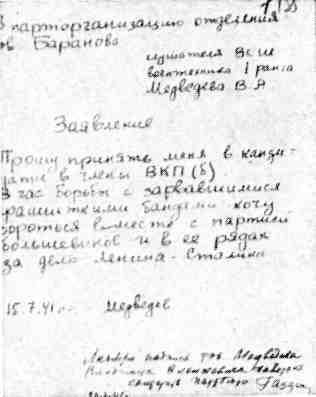 В парторганизацию отделения
тов Баранова
слушателя ВСШ
воентехника 1 ранга
Медведева В.А
Заявление
Прошу принять меня в канди-
даты в члены ВКП(б).
В час борьбы с зарвавшимися
фашисткими бандами хочу
бороться вместе с партией
большевиков и в ее рядах
за дело Ленина - Сталина
15.7.41г. Медведев
подпись тов Медведева